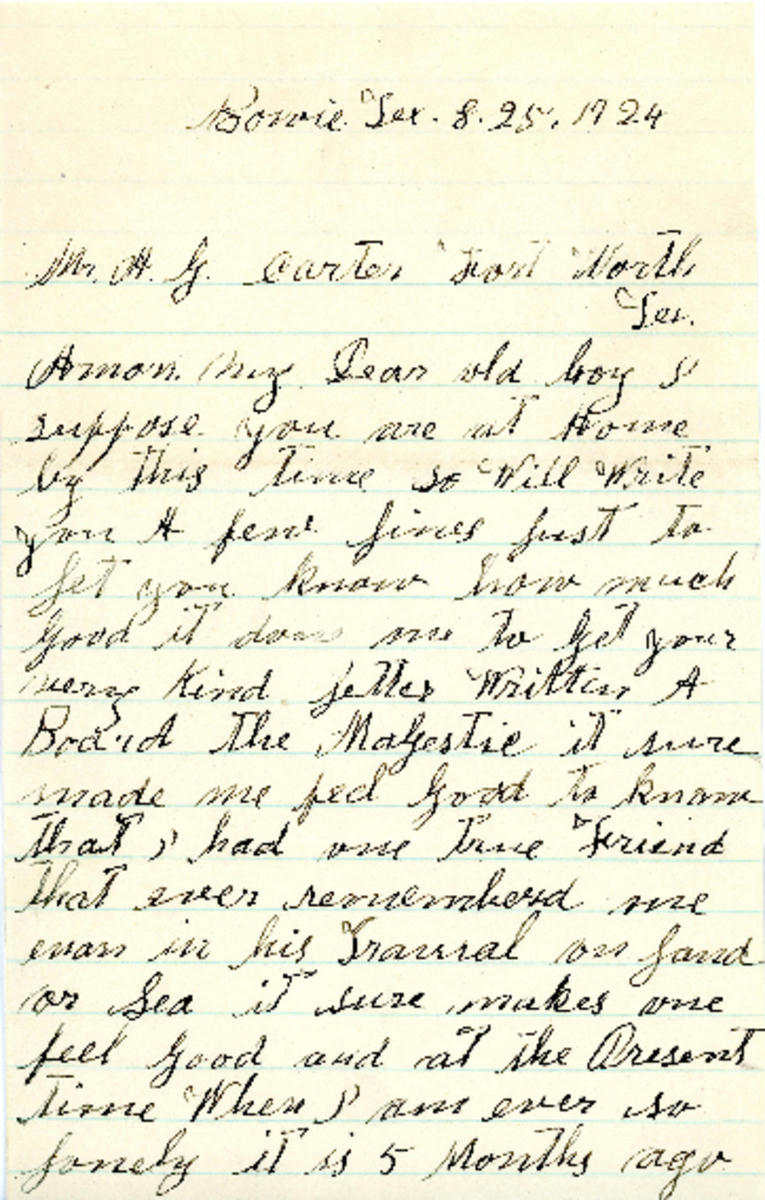 Bowie Tex. 8.25, 1924
Mr. A. G. Carter Fort Worth
Tex.
Amon. My Dear old boy I
suppose you are at Home
by this time so Will Write
you A few lines Just to
let you know how much
Good it done me to Get your
very Kind letter Written A
Board the MaGestic it sure
made me feel Good to know
that I had one True Friend
that ever rememberd me
evan in his Travral on land
or Sea it sure makes one
feel Good and at the Present
time When I am ever so
lonely it is 5 Months ago